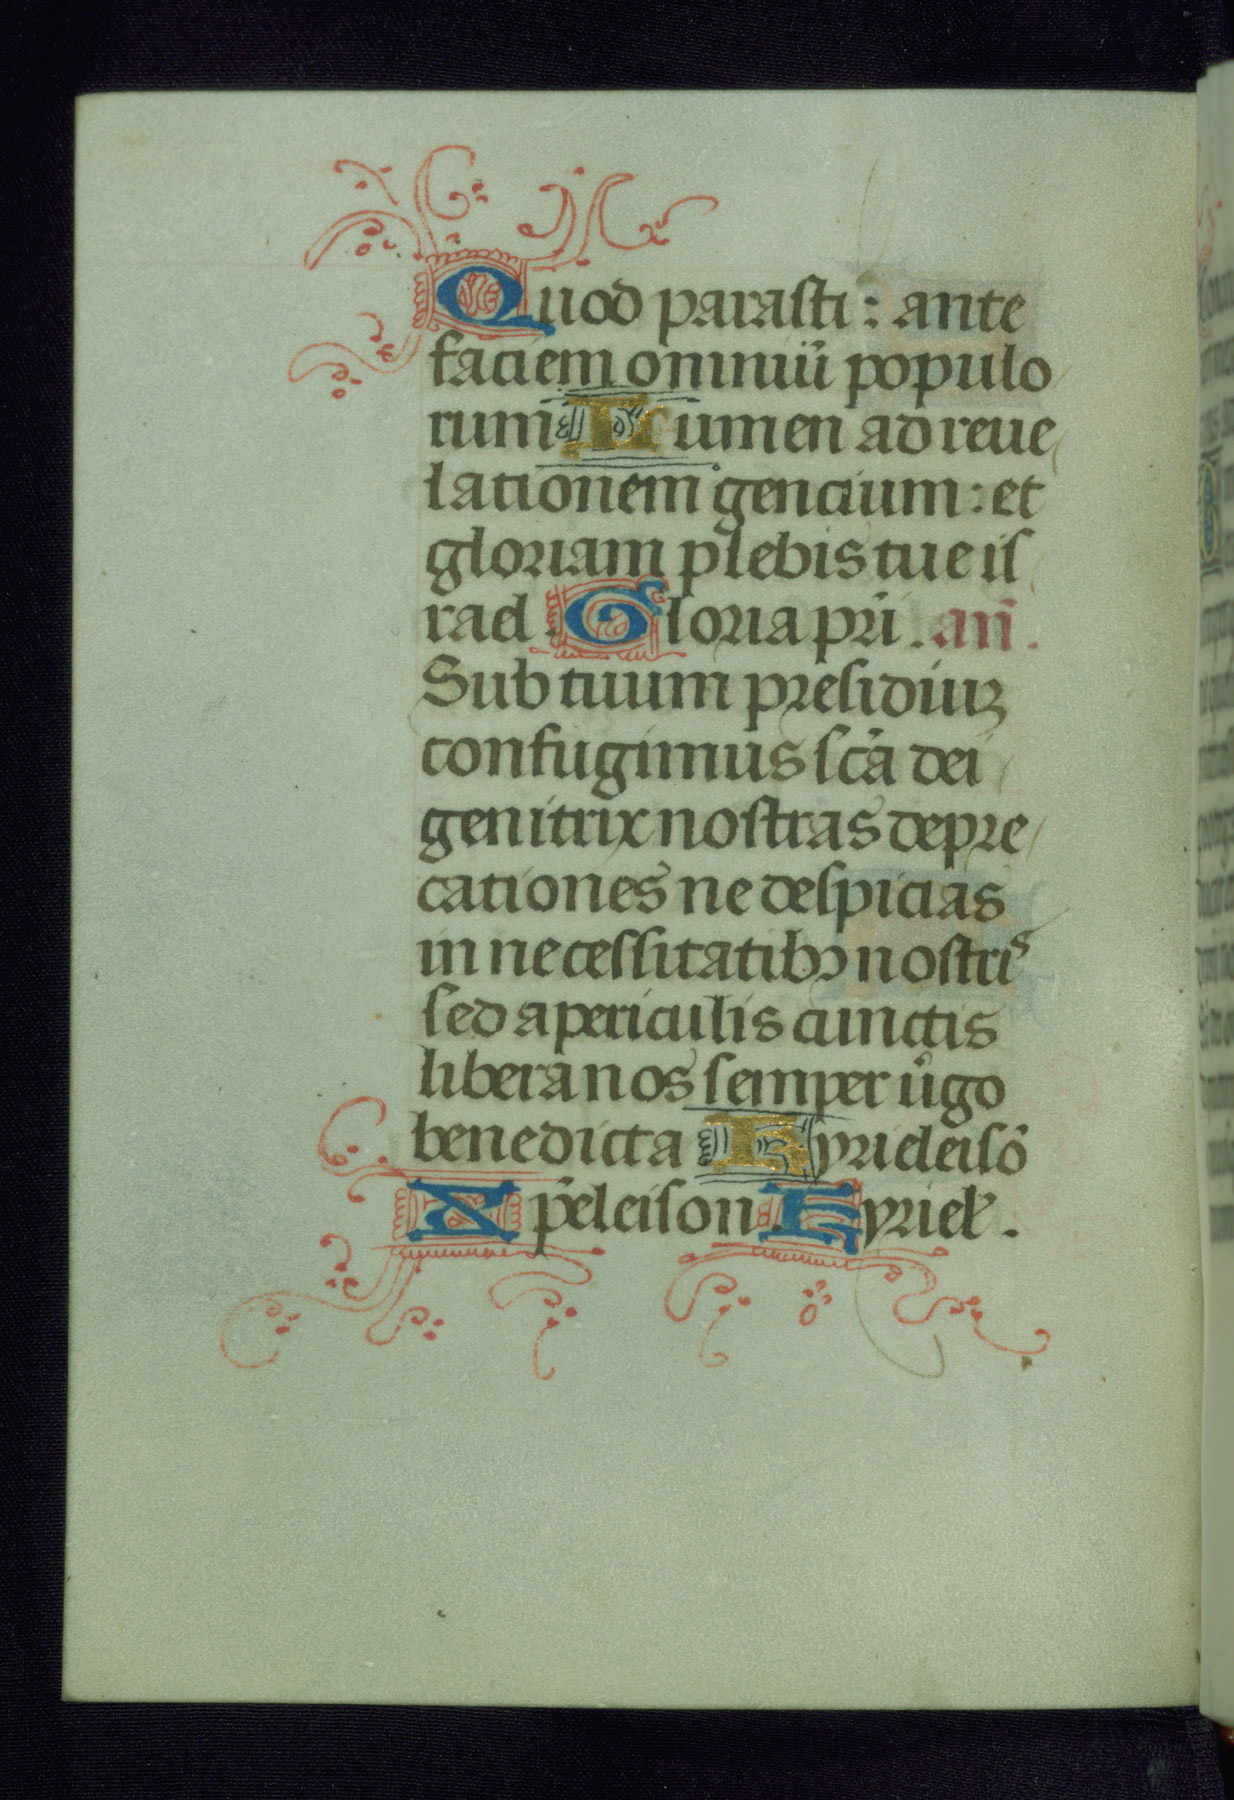 Quod parasti : ante
faciem omniū populo
rum Lumen ad reue
lationem gencium : et
gloriam plebis tue is
rael . Gloria pr̄i . an̄ .
Sub tuum presidiuꝫ
confugimus sc̄a dei
genitrix nostras depre
cationes ne despicias
in necessitatibꝰ nostris
sed a periculis cunctis
libera nos semper ūgo
benedicta Kyrieleisō
Xp̄eleison Kyriel̄ .